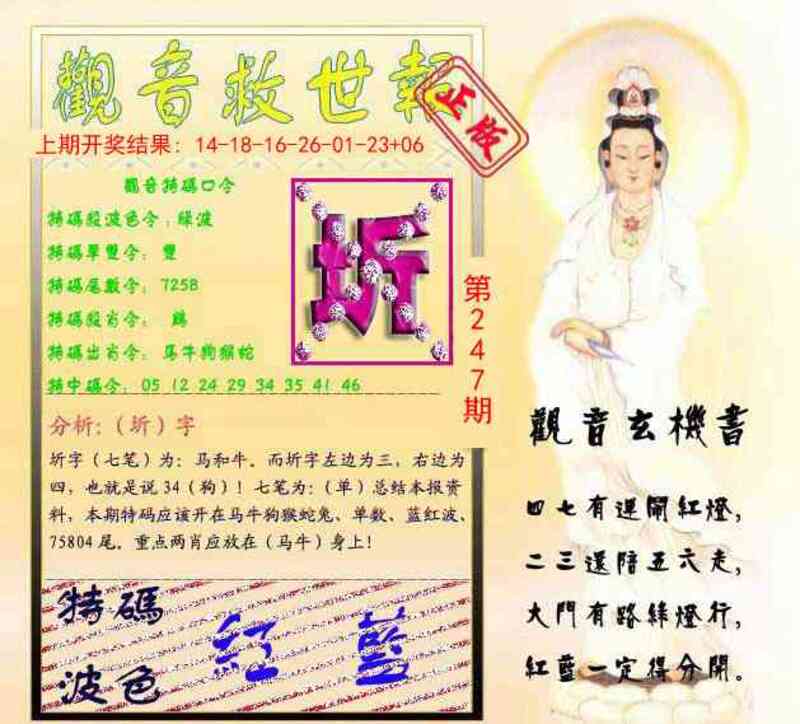 觀音救世報
正版
上期开奖结果：14-18-16-26-01-23+06
觀音特碼口令
特碼殺波色令：綠波
特碼單雙令：雙
特碼尾數令：7258
特碼殺肖令：鷄
特碼出肖令：马牛狗猴蛇
特中碼令：05 12 24 29 34 35 41 46
圻
第247期
分析:（圻）字
圻字（七笔）为：马和牛。而圻字左边为三，右边为
四，也就是说34（狗）！七笔为：（单）总结本报资
料，本期特码应该开在马牛狗猴蛇兔、单数、蓝红波、
75804尾。重点两肖应放在（马牛）身上！
特碼
波色
紅 藍
觀音玄機書
四七有運開紅燈，
二三還陪五六走，
大門有路綠燈行，
紅藍一定得分開。